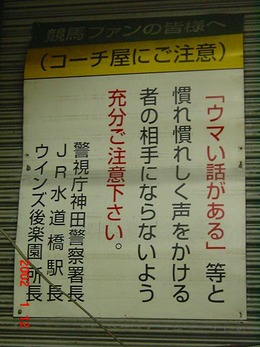 競馬ファンの皆様へ
(コーチ屋にご注意)
「ウマい話がある」等と
慣れ慣れしく声をかける
者の相手にならないよう
充分ご注意下さい。
警視庁神田警察署長
JR水道橋駅長
ウインズ後楽園所長
2002 1 12